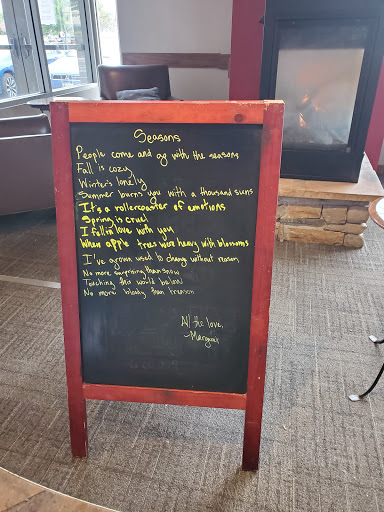 Seasons
People come and go with the seasons
Fall is cozy
Winter's lonely
Summer burns you with a thousand suns
It's a rollercoaster of emotions
Spring is cruel
I fell in love with you
When apple trees were heavy with blossoms
I've grown used to change without reason
No more surprising than snow
Touching this world below
No more bloody than treason
All the love,